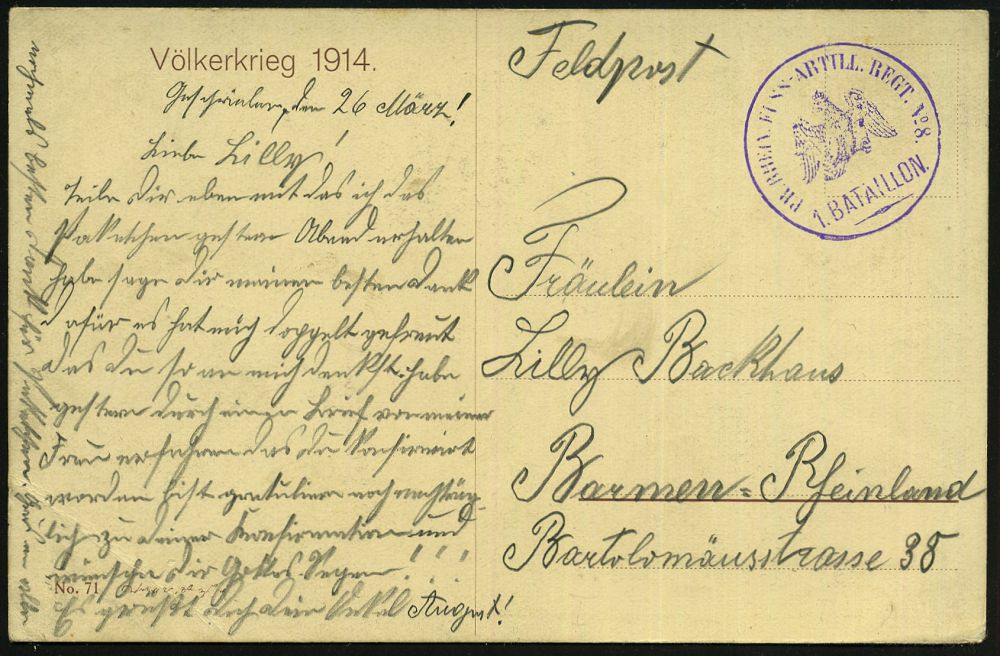 Völkerkrieg 1914.
Geschrieben, den 26 März!
Liebe Lilly!
Teile Dir eben mit das ich das
Paketchen gestern Abend erhalten
habe sage Dir meinen besten Dank
dafür es hat mich doppelt gefreut
das Du so an mich denkst. habe
gestern durch einen Brief von meiner
Frau erfahren das du Konfirmirt
worden bist gratuliere noch nachträg-
lich zu deiner Konfirmation und
wünsche dir Gottes Segen . . .
Es grüßt dich dein Onkel August!
nochmals besten Dank für
No. 71
Feldpost
PR. RHEIN. FUSS-ARTILL. REGT. No 8.
1. BATAILLON.
Fräulein
Lilly Backhaus
Barmen=Rheinland
Bartolomäusstrasse 38